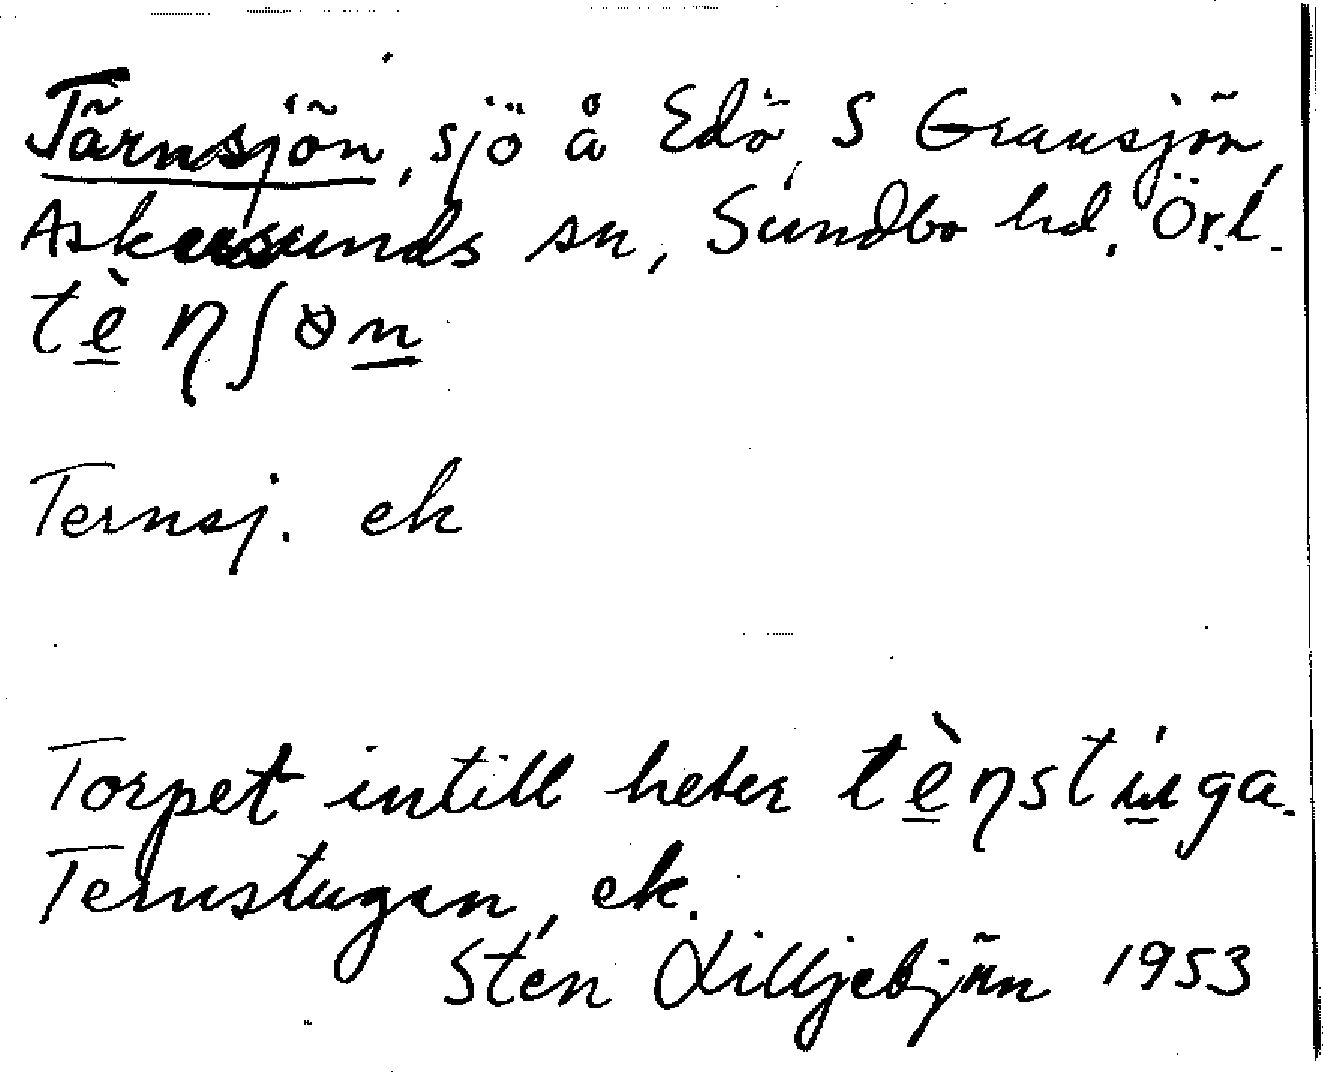 Tärnsjön, sjö å Edö, S Gransjön,
Askersunds sn, Sundbo hd, Ör.l.
tè̱ ƞʃɵn̲
Ternsj. ek
Torpet intill heter tè̱ƞstu̲ga.
Ternstugan, ek.
Sten Lilljebjörn 1953